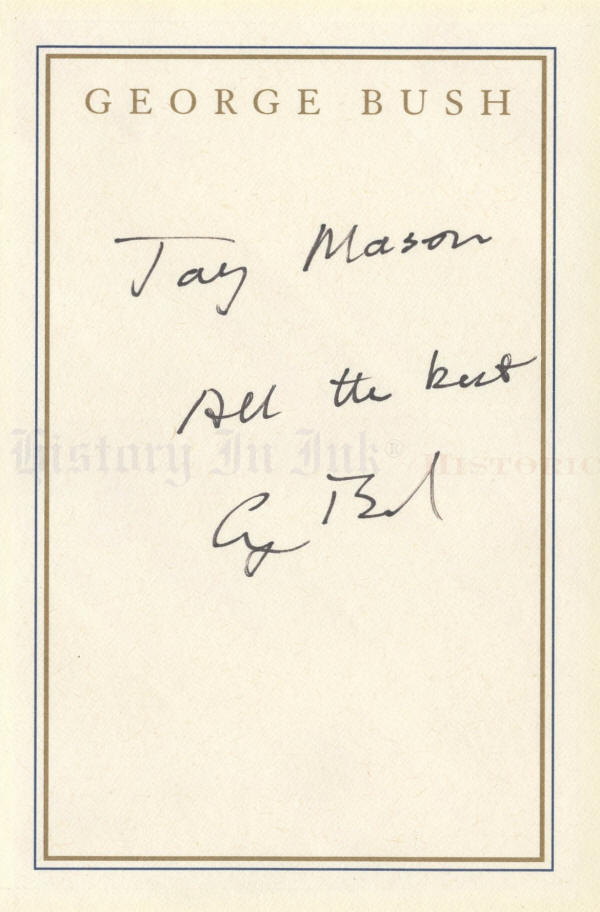 GEORGE BUSH
Jay Mason
All the best
History In Ink® HISTORIC
G Bush